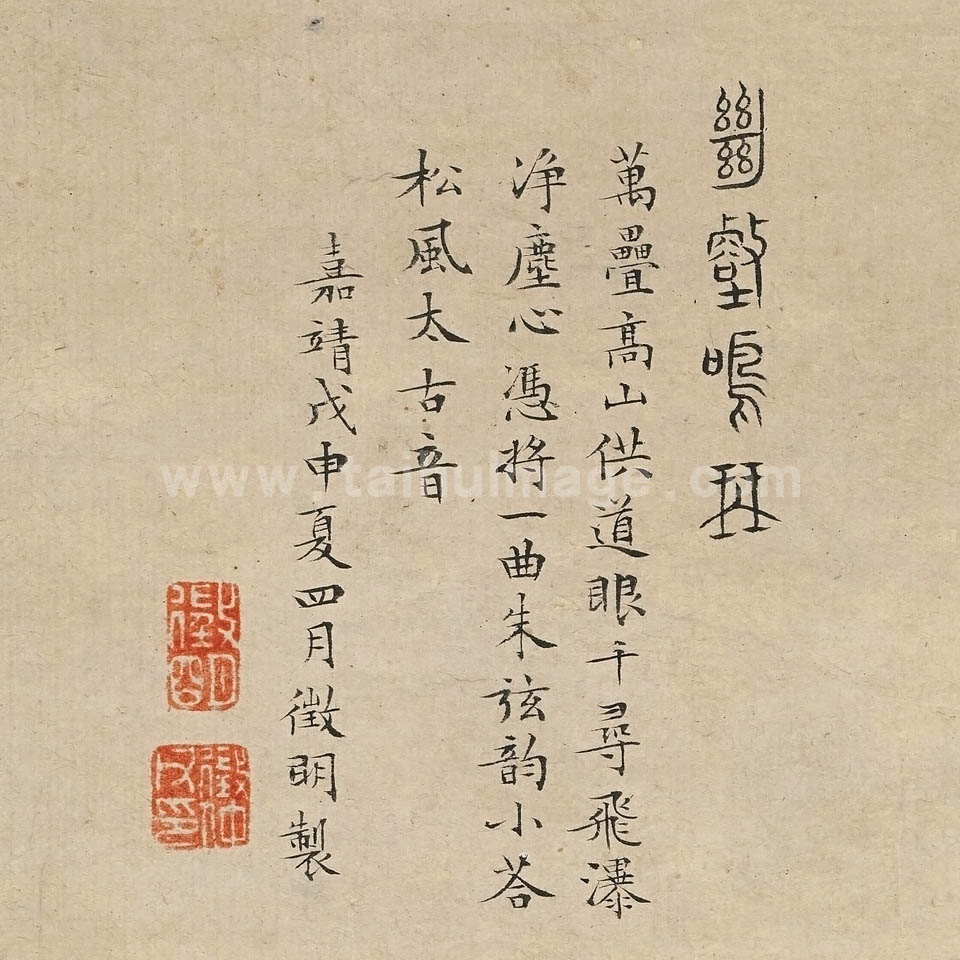 絕壑鳴琴
萬疊高山供道眼千尋飛瀑
淨塵心憑將一曲朱弦韵小荅
松風太古音
嘉靖戊申夏四月徵明製
徵仲父印
www.taihuimage.com